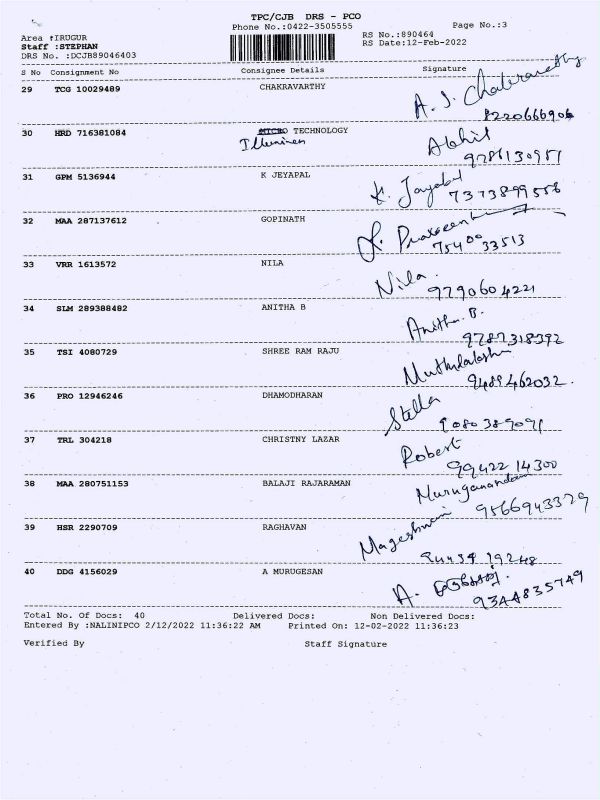 TPC/CJB DRS - PCO
Phone No.:0422-3505555
Page No.:3
Area :IRUGUR
RS No.:890464
Staff :STEPHAN
RS Date:12-Feb-2022
DRS No. :DCJB89046403
S No Consignment No Consignee Details Signature
29 TCG 10029489 CHAKRAVARTHY A. J. Chakravarthy
8220666906
30 HRD 716381084 MICRO TECHNOLOGY Abhil
9786130951
31 GPM 5136944 K JEYAPAL K. Jayabal
7373899556
32 MAA 287137612 GOPINATH
7540033513
33 VRR 1613572 NILA Nila.
9790604221
34 SLM 289388482 ANITHA B Anitha. B.
9787318392
35 TSI 4080729 SHREE RAM RAJU Muthulakshm
9489462032.
36 PRO 12946246 DHAMODHARAN Stella
9080389091
37 TRL 304218 CHRISTNY LAZAR Robert
99422 14300
38 MAA 280751153 BALAJI RAJARAMAN Muruganandam
9566943329
39 HSR 2290709 RAGHAVAN Mageshwari
94434 19248
40 DDG 4156029 A MURUGESAN A.
9344835749
Total No. Of Docs: 40 Delivered Docs: Non Delivered Docs:
Entered By :NALINIPCO 2/12/2022 11:36:22 AM Printed On: 12-02-2022 11:36:23
Verified By Staff Signature